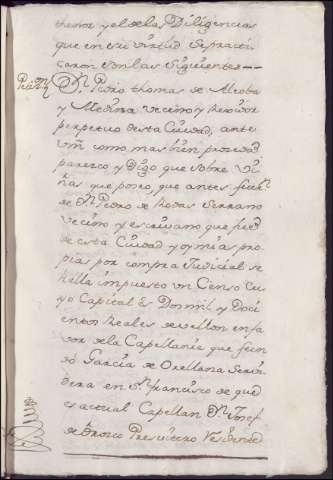 thenor y el de las Diligencias
que en su virtud se practi
caron son las siguientes
Petizn
Dn Pedro thomas de Alcoba
y Medina vecino y Rexidor
perpetuo desta Ciudad, ante
Vm como mas bien proceda
parezco y Digo que sobre Vi
ñas que poseo, que antes fuern
de Dn Pedro de Rodas Serrano
vecino y escrivano que fue
de esta Ciudad y oy mias pro
pias por compra Judicial se
halla impuesto un Censo Cu
yo Capital es Dosmil y Doci
entos Reales de vellon en fa
vor de la Capellania que fun
dó Garcia de Orellana
en Sn francisco de que
es actual Capellan Dn Josef
de Orozco Presvitero Residente